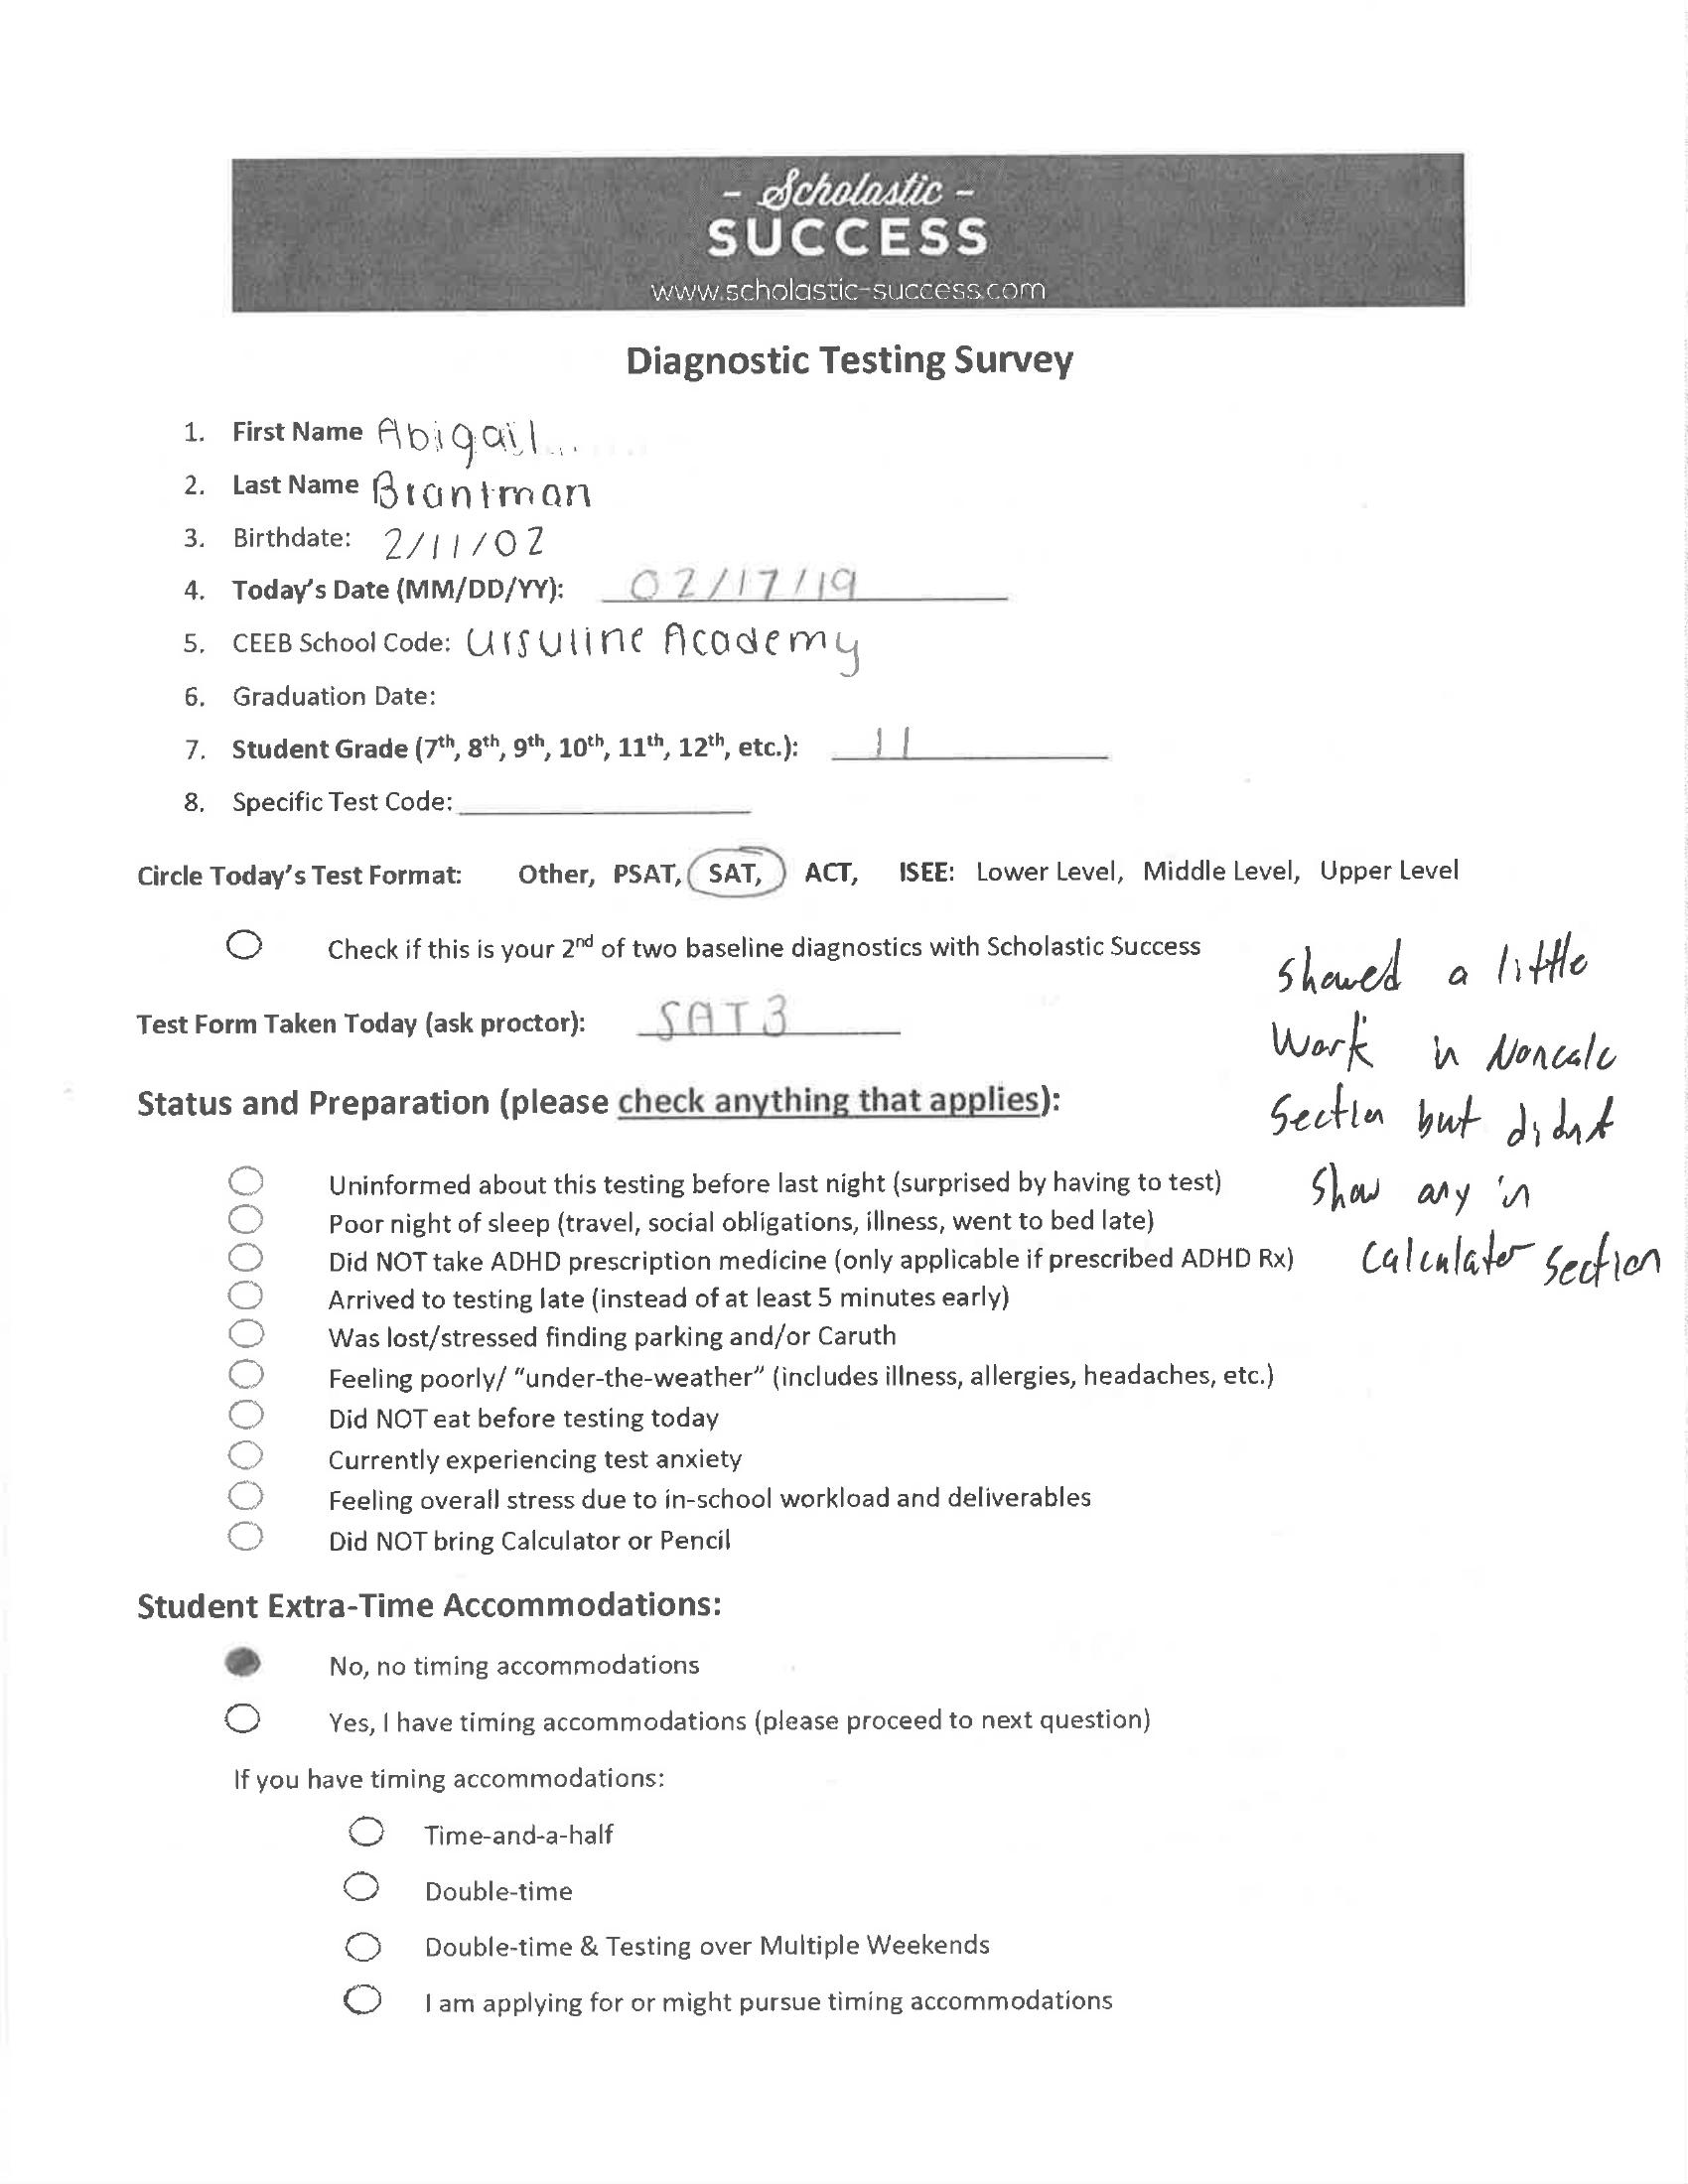 - Scholastic -
SUCCESS
www.scholastic-success.com
Diagnostic Testing Survey
1. First Name Abigail
2. Last Name Brantman
3. Birthdate: 2/11/02
4. Today's Date (MM/DD/YY): 02/17/19
5. CEEB School Code: Ursuline Academy
6. Graduation Date:
7. Student Grade (7th, 8th, 9th, 10th, 11th, 12th, etc.): 11
8. Specific Test Code:
Circle Today's Test Format: Other, PSAT, SAT, ACT, ISEE: Lower Level, Middle Level, Upper Level
Check if this is your 2nd of two baseline diagnostics with Scholastic Success
Test Form Taken Today (ask proctor): SAT 3
showed a little
Work in Noncalc
Section but didnt
show any in
Calculator section
Status and Preparation (please check anything that applies):
Uninformed about this testing before last night (surprised by having to test)
Poor night of sleep (travel, social obligations, illness, went to bed late)
Did NOT take ADHD prescription medicine (only applicable if prescribed ADHD Rx)
Arrived to testing late (instead of at least 5 minutes early)
Was lost/stressed finding parking and/or Caruth
Feeling poorly/ "under-the-weather" (includes illness, allergies, headaches, etc.)
Did NOT eat before testing today
Currently experiencing test anxiety
Feeling overall stress due to in-school workload and deliverables
Did NOT bring Calculator or Pencil
Student Extra-Time Accommodations:
No, no timing accommodations
Yes, I have timing accommodations (please proceed to next question)
If you have timing accommodations:
Time-and-a-half
Double-time
Double-time & Testing over Multiple Weekends
I am applying for or might pursue timing accommodations